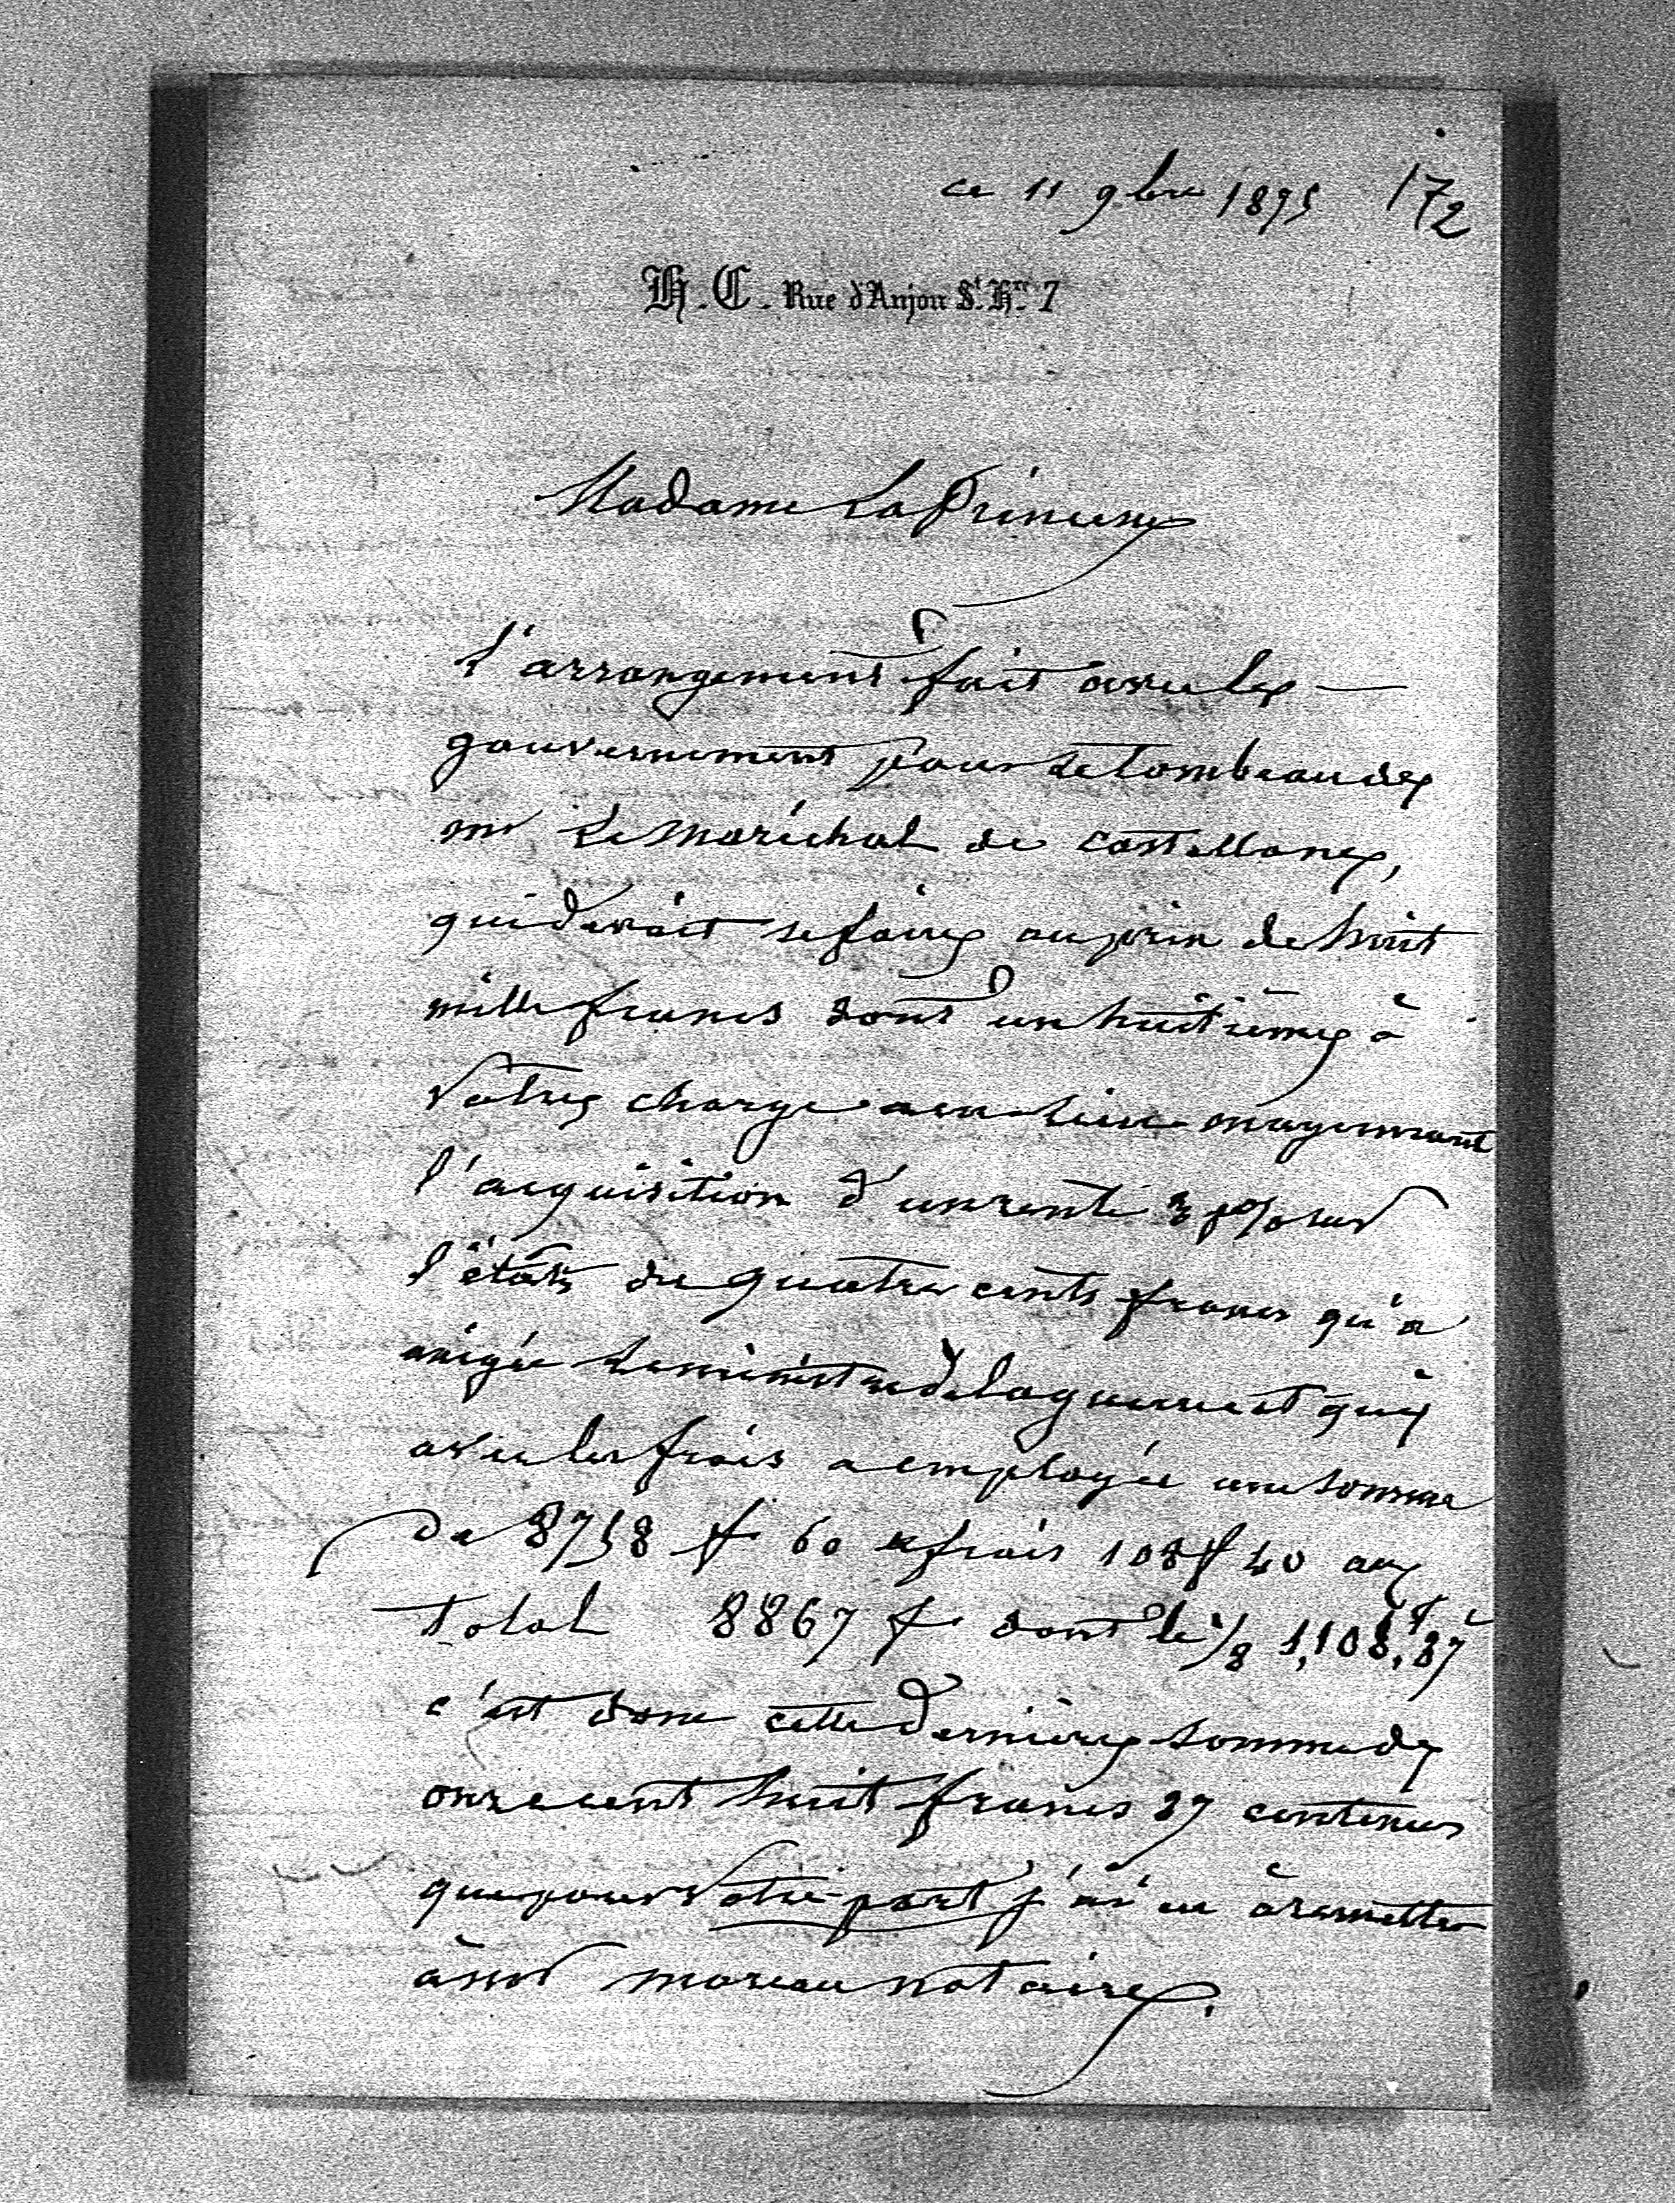 ce 11 9bre 1895 172
H. C. Rue d'Anjou St. Hré. 7
Madame La Princesse
L'arrangement fait avec le
gouvernement pour le tombeau de
mr Le Maréchal de Castellane,
qui devait se faire au prix de huit
mille francs dont un huitième à
votre charge a eu lieu moyennant
l'acquisition d'un rente 3 p% sur
l'état de quatre cents francs qu'a
exigée le ministre de la guerre et qui
avec les frais a employée une somme
de 8758 f 60 & frais 108 f 40 au
total 8867 f dont le 1/8 1,108.f 37c
c'est donc cette dernière somme de
onze cent huit francs 37 centimes
que pour votre part j'ai eu à remettre
à mr moreau notaire.